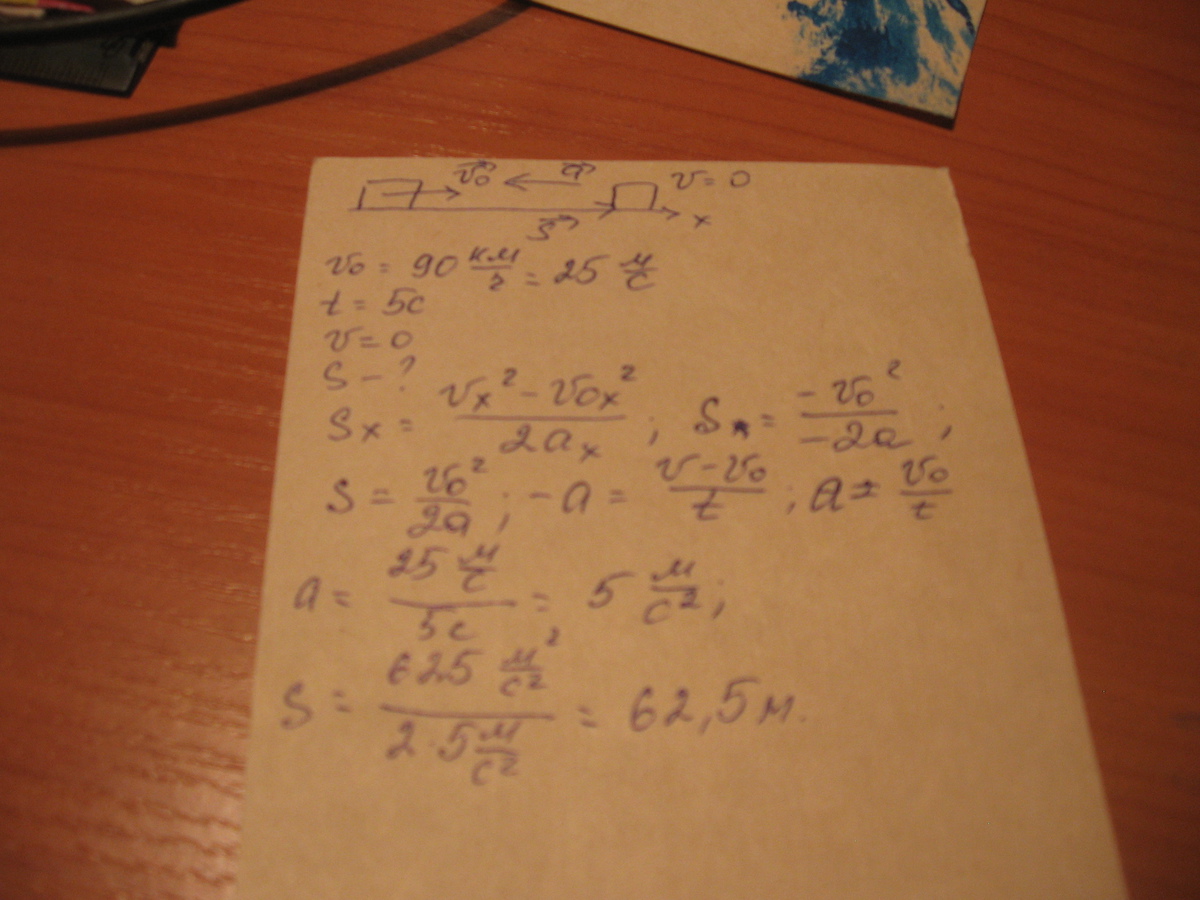 v₀ a v = 0
S x
v₀ = 90 км/г = 25 м/с
t = 5с
v = 0
S – ?
Sx = (vx² – v₀x²)/(2ax) ; S = –v₀²/–2a ;
S = v₀²/2a ; –a = (v – v₀)/t ; a = v₀/t
a = (25 м/с)/(5с) = 5 м/с² ;
S = (625 м²/с²)/(2·5 м/с²) = 62,5 м.